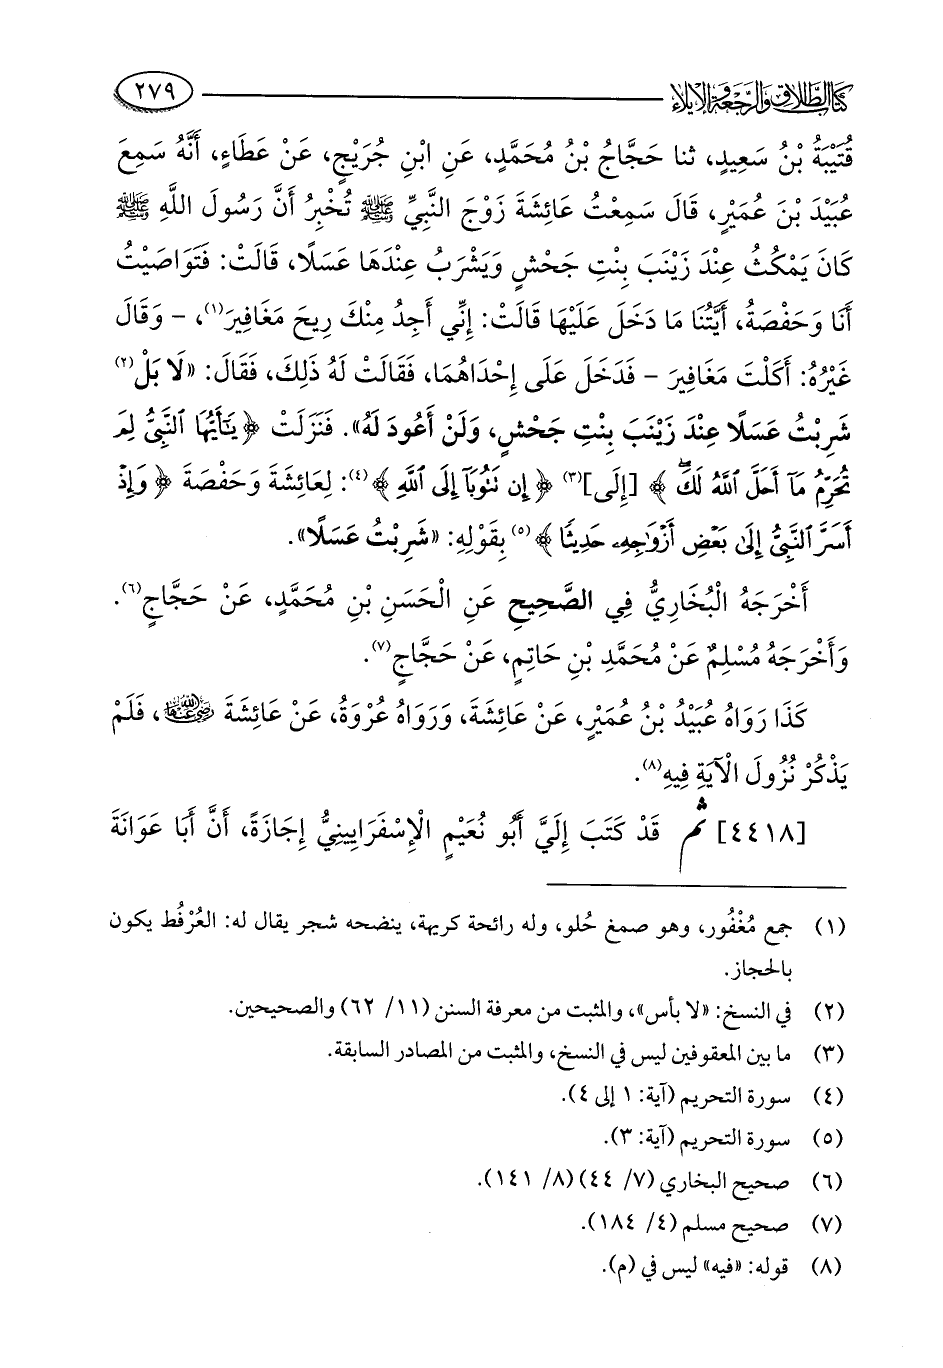 كتاب الطلاق والرجعة والإيلاء ٢٧٩
قُتَيْبَةُ بْنُ سَعِيدٍ، ثنا حَجَّاجُ بْنُ مُحَمَّدٍ، عَنِ ابْنِ جُرَيْجٍ، عَنْ عَطَاءٍ، أَنَّهُ سَمِعَ
عُبَيْدَ بْنَ عُمَيْرٍ، قَالَ سَمِعْتُ عَائِشَةَ زَوْجَ النَّبِيِّ ﷺ تُخْبِرُ أَنَّ رَسُولَ اللَّهِ ﷺ
كَانَ يَمْكُثُ عِنْدَ زَيْنَبَ بِنْتِ جَحْشٍ وَيَشْرَبُ عِنْدَهَا عَسَلًا، قَالَتْ: فَتَوَاصَيْتُ
أَنَا وَحَفْصَةُ، أَيَّتُنَا مَا دَخَلَ عَلَيْهَا قَالَتْ: إِنِّي أَجِدُ مِنْكَ رِيحَ مَغَافِيرَ(١)، - وَقَالَ
غَيْرُهُ: أَكَلْتَ مَغَافِيرَ - فَدَخَلَ عَلَى إِحْدَاهُمَا، فَقَالَتْ لَهُ ذَلِكَ، فَقَالَ: «لَا بَلْ(٢)
شَرِبْتُ عَسَلًا عِنْدَ زَيْنَبَ بِنْتِ جَحْشٍ، وَلَنْ أَعُودَ لَهُ». فَنَزَلَتْ ﴿يَٰٓأَيُّهَا ٱلنَّبِىُّ لِمَ
تُحَرِّمُ مَآ أَحَلَّ ٱللَّهُ لَكَۖ﴾ [إِلَى](٣) ﴿إِن تَتُوبَآ إِلَى ٱللَّهِ﴾(٤): لِعَائِشَةَ وَحَفْصَةَ ﴿وَإِذْ
أَسَرَّ ٱلنَّبِىُّ إِلَىٰ بَعْضِ أَزْوَٰجِهِۦ حَدِيثًا﴾(٥) بِقَوْلِهِ: «شَرِبْتُ عَسَلًا».
أَخْرَجَهُ الْبُخَارِيُّ فِي الصَّحِيحِ عَنِ الْحَسَنِ بْنِ مُحَمَّدٍ، عَنْ حَجَّاجٍ(٦).
وَأَخْرَجَهُ مُسْلِمٌ عَنْ مُحَمَّدِ بْنِ حَاتِمٍ، عَنْ حَجَّاجٍ(٧).
كَذَا رَوَاهُ عُبَيْدُ بْنُ عُمَيْرٍ، عَنْ عَائِشَةَ، وَرَوَاهُ عُرْوَةُ، عَنْ عَائِشَةَ رضي الله عنها، فَلَمْ
يَذْكُرْ نُزُولَ الْآيَةِ فِيهِ(٨).
[٤٤١٨] قَدْ كَتَبَ إِلَيَّ أَبُو نُعَيْمٍ الْإِسْفَرَايِينِيُّ إِجَازَةً، أَنَّ أَبَا عَوَانَةَ
(١) جمع مُغْفُور، وهو صمغ حُلو، وله رائحة كريهة، ينضحه شجر يقال له: العُرْفُط يكون
بالحجاز.
(٢) في النسخ: «لا بأس»، والمثبت من معرفة السنن (١١/ ٦٢) والصحيحين.
(٣) ما بين المعقوفين ليس في النسخ، والمثبت من المصادر السابقة.
(٤) سورة التحريم (آية: ١ إلى ٤).
(٥) سورة التحريم (آية: ٣).
(٦) صحيح البخاري (٧/ ٤٤) (٨/ ١٤١).
(٧) صحيح مسلم (٤/ ١٨٤).
(٨) قوله: «فيه» ليس في (م).